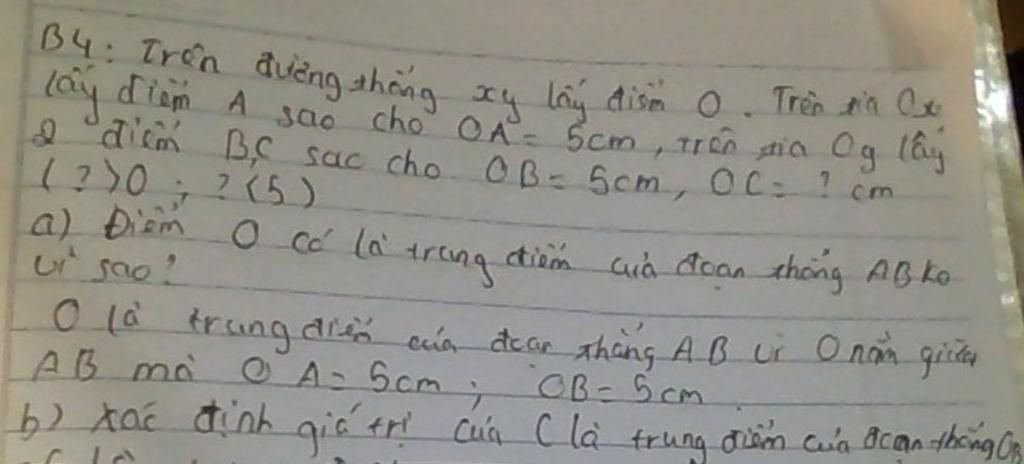 B4: Trên đường thẳng xy lấy điểm O. Trên tia Ox
lấy điểm A sao cho OA = 5cm, trên tia Oy lấy
2 điểm B,C sao cho OB = 5cm, OC = ? cm
(?>0 ; ?<5)
a) Điểm O có là trung điểm của đoạn thẳng AB ko
vì sao?
O là trung điểm của đoạn thẳng AB vì O nằm giữa
AB mà OA = 5cm ; OB = 5cm.
b) Xác định giá trị của C là trung điểm của đoạn thẳng OB